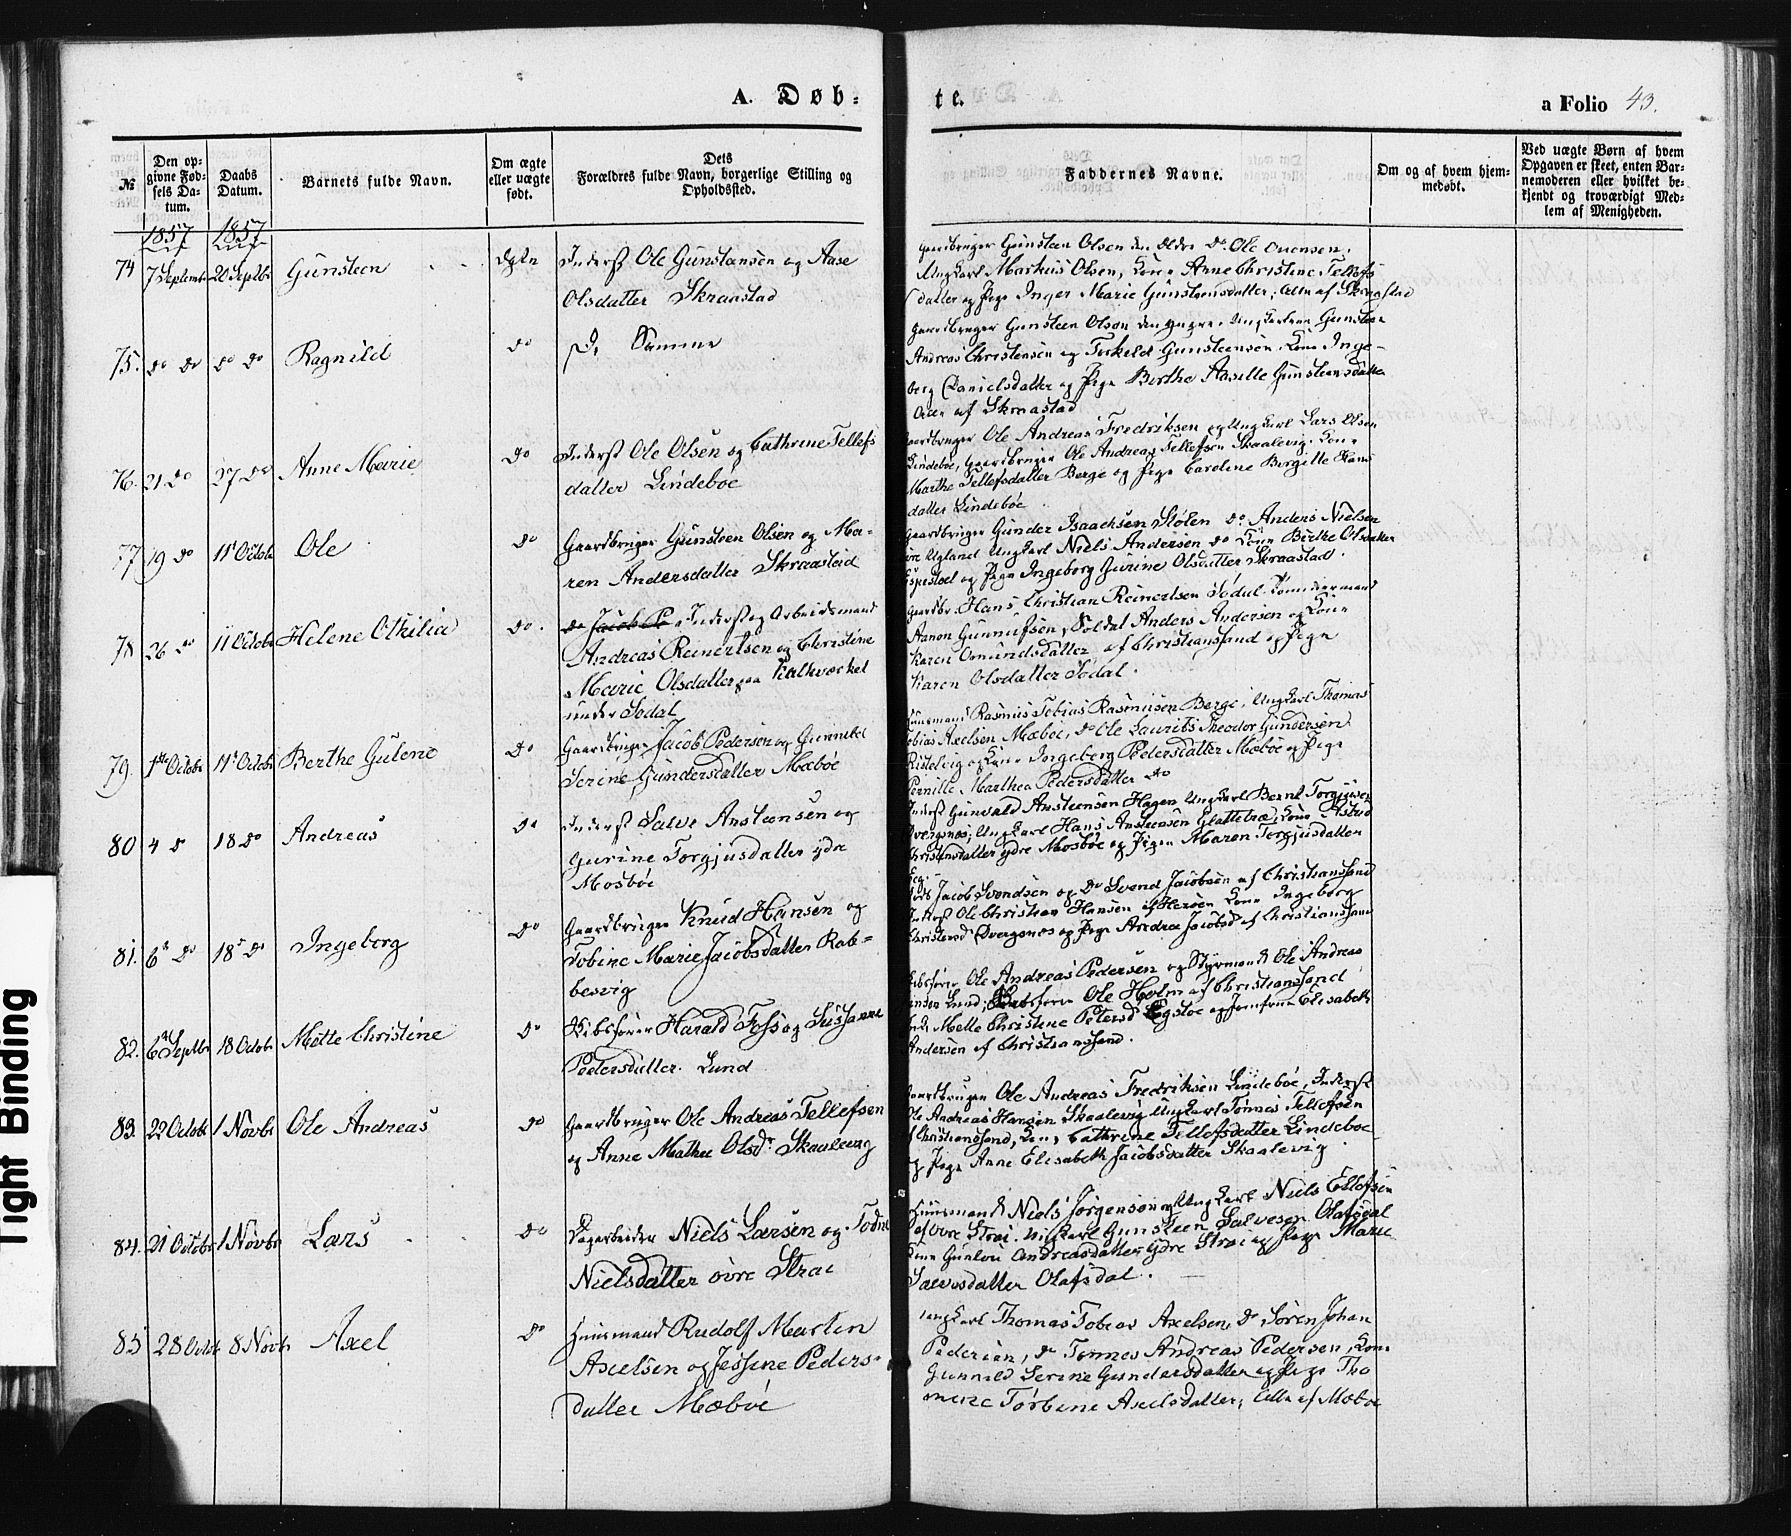 A. Døb-
te.
a Folio 43.
№
Den op-
givne Fød-
sels Da-
tum.
Daabs
Datum.
Barnets fulde Navn.
Om ægte
eller uægte
født.
Dets
Forældres fulde Navn, borgerlige Stilling og
Opholdssted.
Faddernes Navne.
Om og af hvem hjem-
medøbt.
Ved uægte Børn af hvem
Opgaven er skeet, enten Bar-
nemoderen eller hvilket be-
kjendt og troværdigt Med-
lem af Menigheden.
1857 1857
74 7 Septembr 20 Septbr Gunsteen Egte
Inderst Ole Gunstensen og Aase
Olsdatter Skraastad
Gaardbruger Gunsteen Olsen den Eldre Do Ole
Ungkarl Markus Olsen, Kone Anne Christine Tellefs
datter og Pige Inger Marie Gunsteensdatter, Alle af Skraastad
75. do do do do Ragnild do
De Samme
Gaardbruger Gunsteen Olsen den yngre, Ungkarlene Gunsteen
Andreas Christensen og Torkeld Gunsteensen, Kone Inge-
borg Danielsdatter og Pige Berthe Aaselle Gunsteensdatter
Alle af Skraastad
76. 21 do 27 do Anne Marie do
Inderst Ole Olsen og Cathrine Tellefs
datter Lindeboe
Gaardbruger Ole Andreas Fredriksen og Ungkarl Lars Olsen
Lindeboe, Gaardbruger Ole Andreas Tellefsen Skaalevig, Kone
Marthe Tellefsdatter Berge og Pige Caroline Bergitte Hans
datter Lindeboe
77 19 do 11t Octobr Ole do
Gaardbruger Gunsteen Olsen og Ma-
ren Andersdatter Skraastad
Gaardbruger Gunder Isaachsen Stølen Do Anders Nielsen
Ugland Ungkarl Niels Andersen do Kone Birthe Olsdatter
og Pige Ingeborg Gurine Olsdatter Skraastad.
78 26 do 11 Octobr Helene Othilia do.
do Jacob Pe Inderst og Arbeidsmand
Andreas Reinertsen og Christine
Marie Olsdatter paa Kalkværket
under Sødal
Gaardbr. Hans Christian Reinertsen Sødal, Tømmermand
Aanon Gunnufsen, Soldat Anders Andersen og Kone
Karen Omundsdatter af Christianssand og Pige
Karen Olsdatter Sødal.
79. 1ste Octobr 11t Octobr Berthe Gulene do
Gaardbruger Jacob Pedersen og Gunnild
Serine Gundersdatter Mæbøe
Huusmand Rasmus Tobias Rasmusen Berge, Ungkarl Thomas
Tobias Axelsen Mæbøe, do Ole Laurits Theodor Gundersen
og Kone Ingeborg Pedersdatter Mæbøe og Pige
Pernille Marthea Pedersdatter do
80 4 do 18 do Andreas do
Inderst Salve Anstensen og
Gurine Torgjusdatter ydre
Mosbøe
Inderst Gunvald Anstensen Hagen Ungkarl Bernt Torgjusen
Dvergsnes, Ungkarl Hans Anstensen Slattebræ, Kone Astrid
Christensdatter ydre Mosbøe og Pigen Maren Torgjusdatter
81. 6t do 18t do Ingeborg do
Gaardbruger Knud Hansen og
Tobine Marie Jacobsdatter Rob-
besvig
Jacob Svendsen og Do Svend Jacobsen af Christianssand
Inderst Ole Christian Hansen af Herøen Kone Ingeborg
Christensd Dvergsnes og Pige Andrea Jacobsd af Christianssand
82. 6t Septbr 18 Octobr Mette Christine do
Skibsfører Harald Foss og Susanne
Pedersdatter Lund
Skibsfører Ole Andreas Pedersen og Styrmand Ole Andreas
Hansen Lund, Skibsfører Ole Holm af Christianssand
Mette Christine Petersd Egstøe og Jomfrue Elisabeth
Andersen af Christianssand.
83. 22 Octobr 1 Novbr Ole Andreas do
Gaardbruger Ole Andreas Tellefsen
og Anne Mathea Olsdr Skaalevig
Gaardbruger Ole Andreas Fredriksen Lindebøe, Inderst
Ole Andreas Hansen Skaalevig Ungkarl Tønnes Tellefsen
af Christianssand, Kone Cathrine Tellefsdatter Lindeboe
og Pige Anne Elisabeth Jacobsdatter Skaalevig
84. 21 Octobr 1 Novbr Lars do
Dagarbeider Niels Larsen og Todne
Nielsdatter øvre Strai
Huusmand Niels Jørgensen og Ungkarl Niels Ellefsen
af øvre Strai, Ungkarl Gunsteen Salvesen Olafsdal
Kone Gunlou Andreasdatter ydre Strai og Pige Marie
Salvesdatter Olafsdal.
85 28 Octobr 8 Novbr Axel do
Huusmand Rudolf Martin
Axelsen og Jessine Peders-
datter Mæbøe
Ungkarl Thomas Tobias Axelsen, Do Søren Johan
Pedersen, do Tønnes Andreas Pedersen, Kone
Gunnild Serine Gundersdatter og Pige Tho
mine Torbine Axelsdatter, Alle af Mæboe
Tight Binding